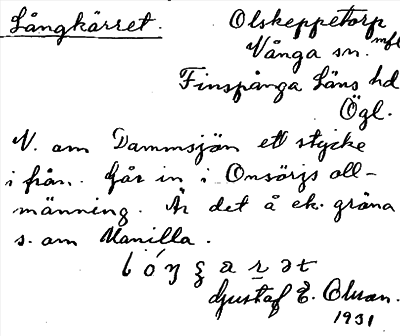 Långkärret. Olskeppetorp
mfl
Vånga sn.
Finspånga Läns hd
Ögl.
N. om Dammsjön ett stycke
i från. Går in i Onsörjs all-
männing. Är det å ek. gräna
s. om Manilla.
Gustaf E. Olsson.
1931